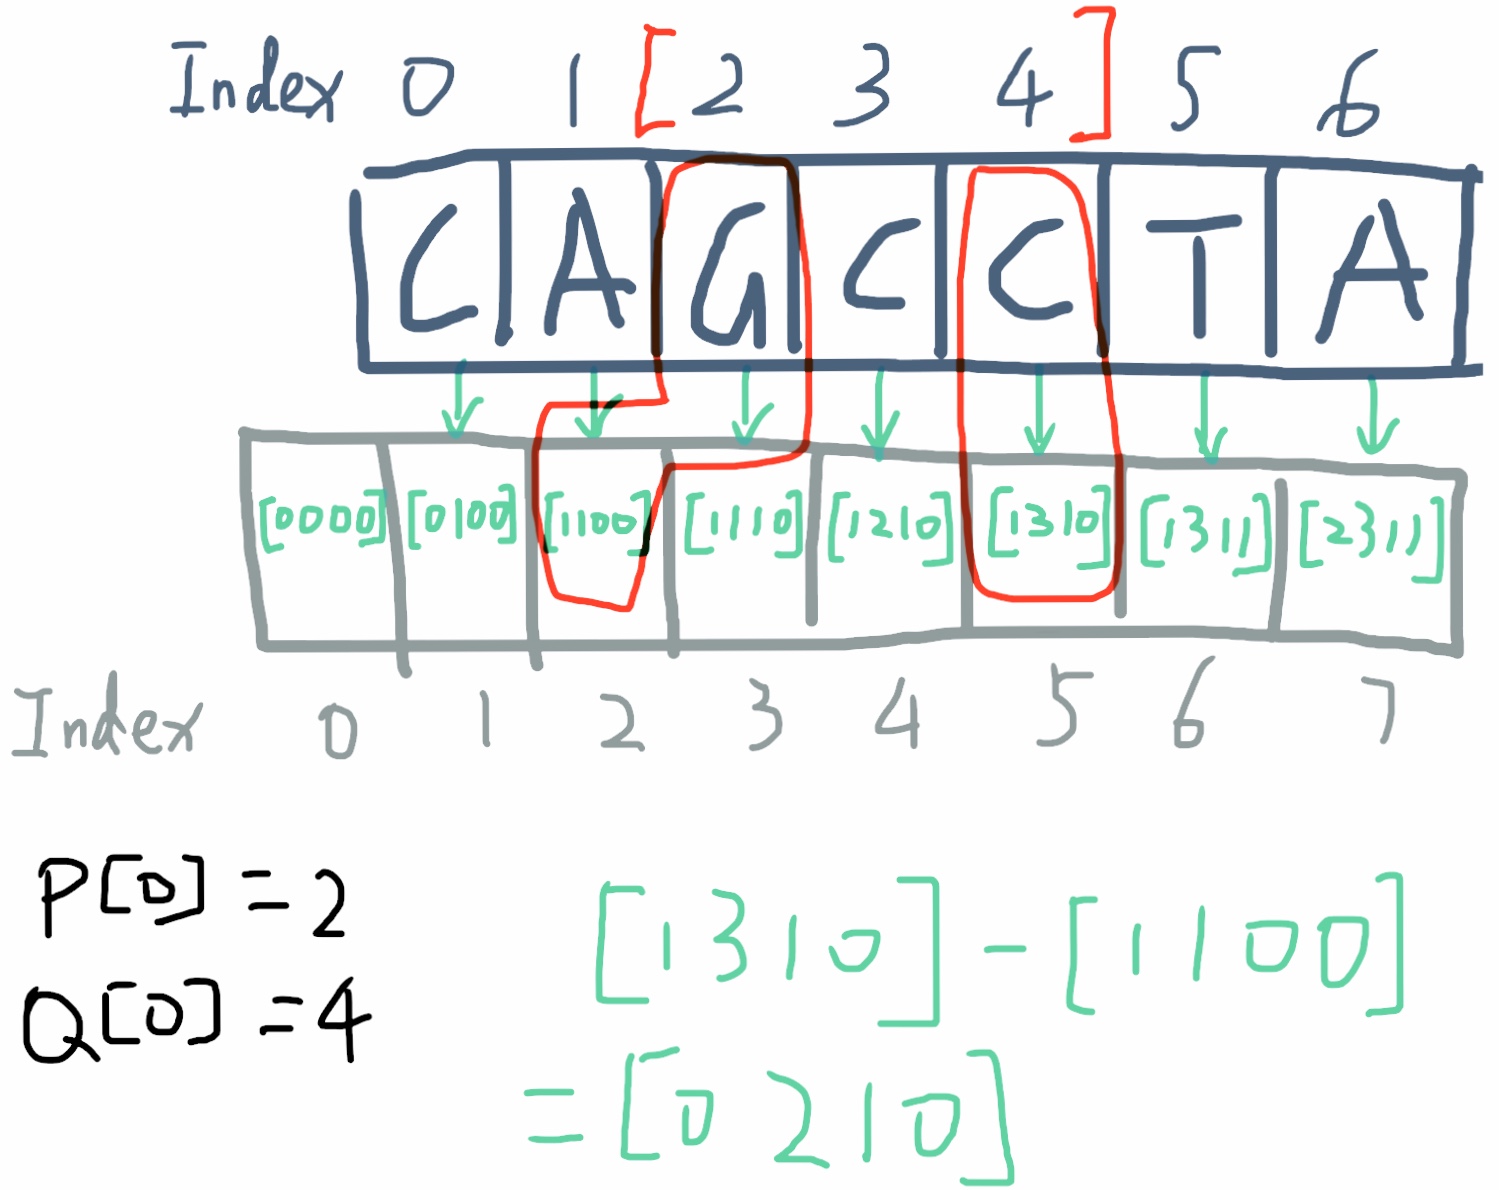 Index 0 1 [ 2 3 4 ] 5 6
C A G C C T A
[0000] [0100] [1100] [1110] [1210] [1310] [1311] [2311]
Index 0 1 2 3 4 5 6 7
P[0] = 2
Q[0] = 4
[1310] - [1100]
= [0210]